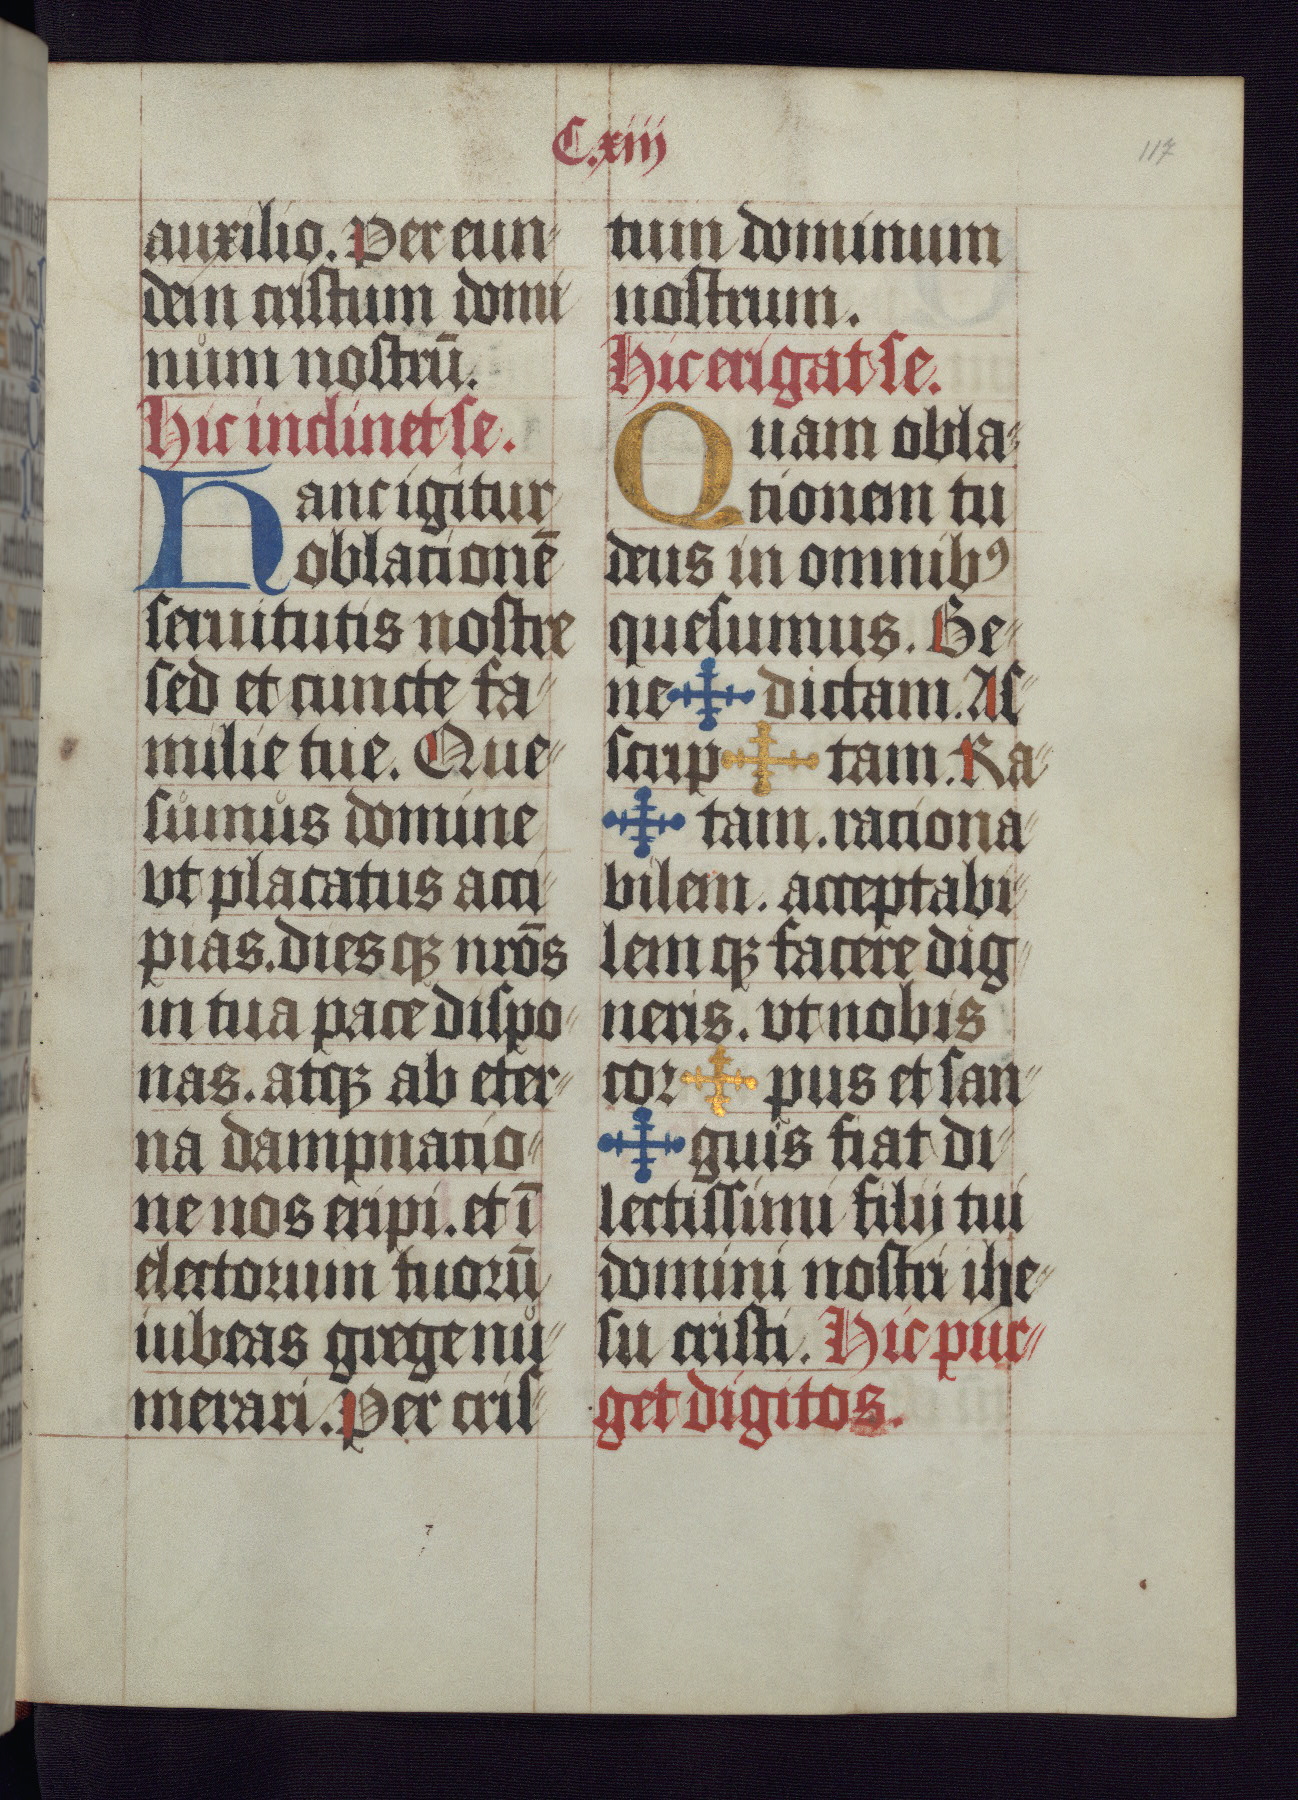 C.xiii
117
auxilio. Per eun-
dem cristum domi
nům nostrū.
Hic inclinet se.
Hanc igitur
oblationē
seruitutis nostre
sed et cuncte fa-
milie tue. Que-
sůmůs domine
vt placatus acci
pias. diesqꝫ nrōs
in tua pace dispo-
nas. atqꝫ ab eter-
na dampnatio-
ne nos eripi. et ī
electorum tuorū
iubeas grege nů-
merari. Per cris-
tum dominum
nostrum.
Hic erigat se.
Quam obla-
tionem tu
deus in omnibꝰ
quesumus. Be-
ne✠dictam. As-
scrip✠tam. Ra-
✠tam. rationa
bilem. acceptabi-
lemqꝫ facere dig
neris. vt nobis
cor✠pus et san-
✠guis fiat di-
lectissimi filij tui
domini nostri ihe-
su cristi. Hic pur-
get digitos.